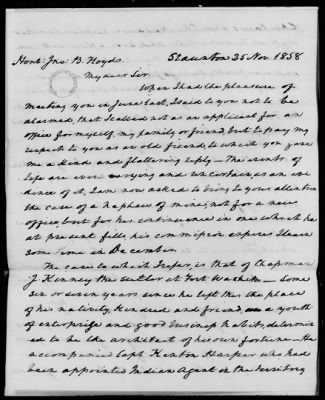 Honbl: Jno: B. Floyd, Staunton 25 Nov. 1858
My dear Sir.
When I had the pleasure of
meeting you in June last, I said to you not to be
alarmed, that I called not as an applicant for an
office for myself, my family or friend, but to pay my
respect to you as an old friend, to which you gave
me a kind and flattering reply — The events of
life are ever varying and uncertain, as an evi
dence of it, I am now asked to bring to your attention
the case of a nephew of mine, not for a new
office, but for his continuance in one which he
at present fills, his commission expires I learn
some time in December
The case to which I refer, is that of Chapman
J. Kinney the Sutler at Fort Washita — Some
six or seven years since he left this the place
of his nativity, Kindred and friends, a youth
of enterprise and good business habits, determin
ed to be the architect of his own fortune — He
accompanied Capt Kenton Harper who had
been appointed Indian Agent in the Territory